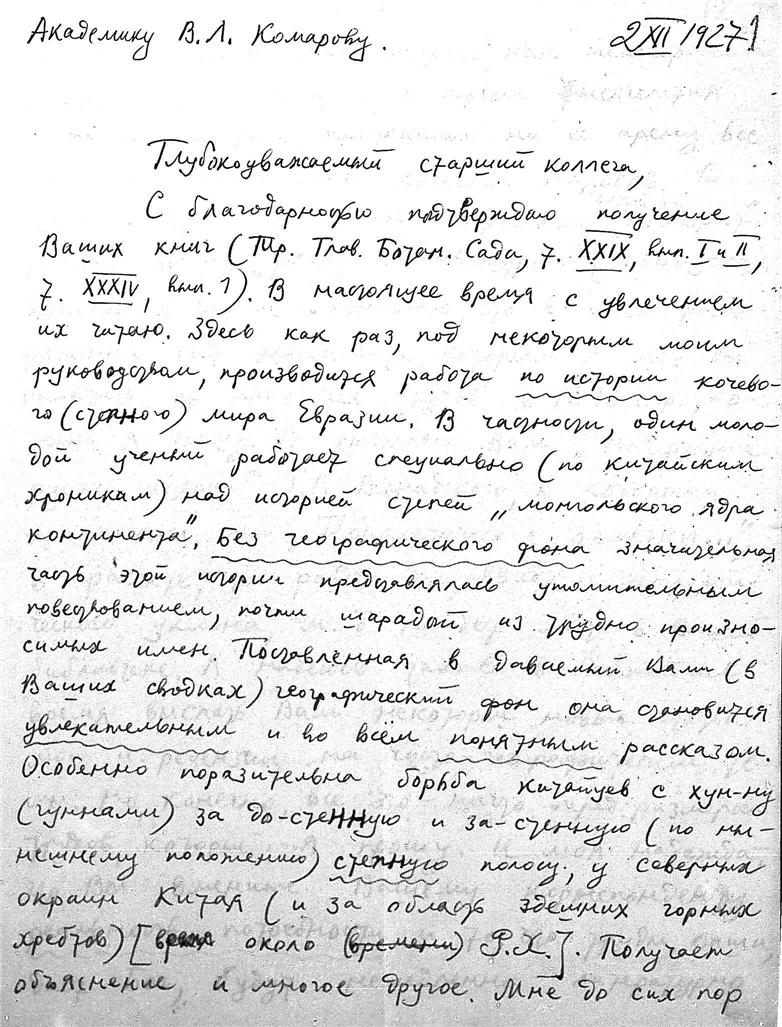 Академику В. Л. Комарову.
2 XII 1927
Глубокоуважаемый старший коллега,
С благодарностью подтверждаю получение
Ваших книг (Тр. Глав. Ботан. Сада, т. XXIX, вып. I и II,
т. XXXIV, вып. 1). В настоящее время с увлечением
их читаю. Здесь как раз, под некоторым моим
руководством, производится работа по истории кочево-
го (степного) мира Евразии. В частности, один моло-
дой ученый работает специально (по китайским
хроникам) над историей степей „монгольского ядра
континента". Без географического фона значительная
часть этой истории представлялась утомительным
повествованием, почти шарадой из трудно произно-
симых имен. Поставленная в даваемый Вами (в
Ваших сводках) географический фон она становится
увлекательным и во всём понятным рассказом.
Особенно поразительна борьба китайцев с хун-ну
(гуннами) за до-стенную и за-стенную (по ны-
нешнему положению) степную полосу, у северных
окраин Китая (и за область здешних горных
хребтов) [время около (времени) Р.Х.]. Получает
объяснение, и многое другое. Мне до сих пор